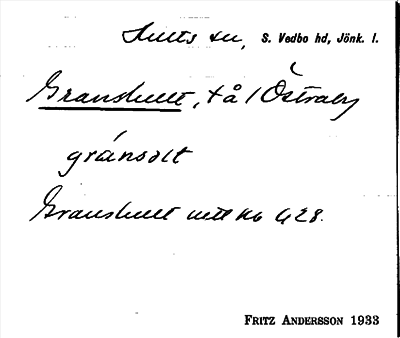 Hults sn, S. Vedbo hd, Jönk. l.
Granshult, t å / Östraby
gránsolt
Granshult utt kb 428.
FRITZ ANDERSSON 1933